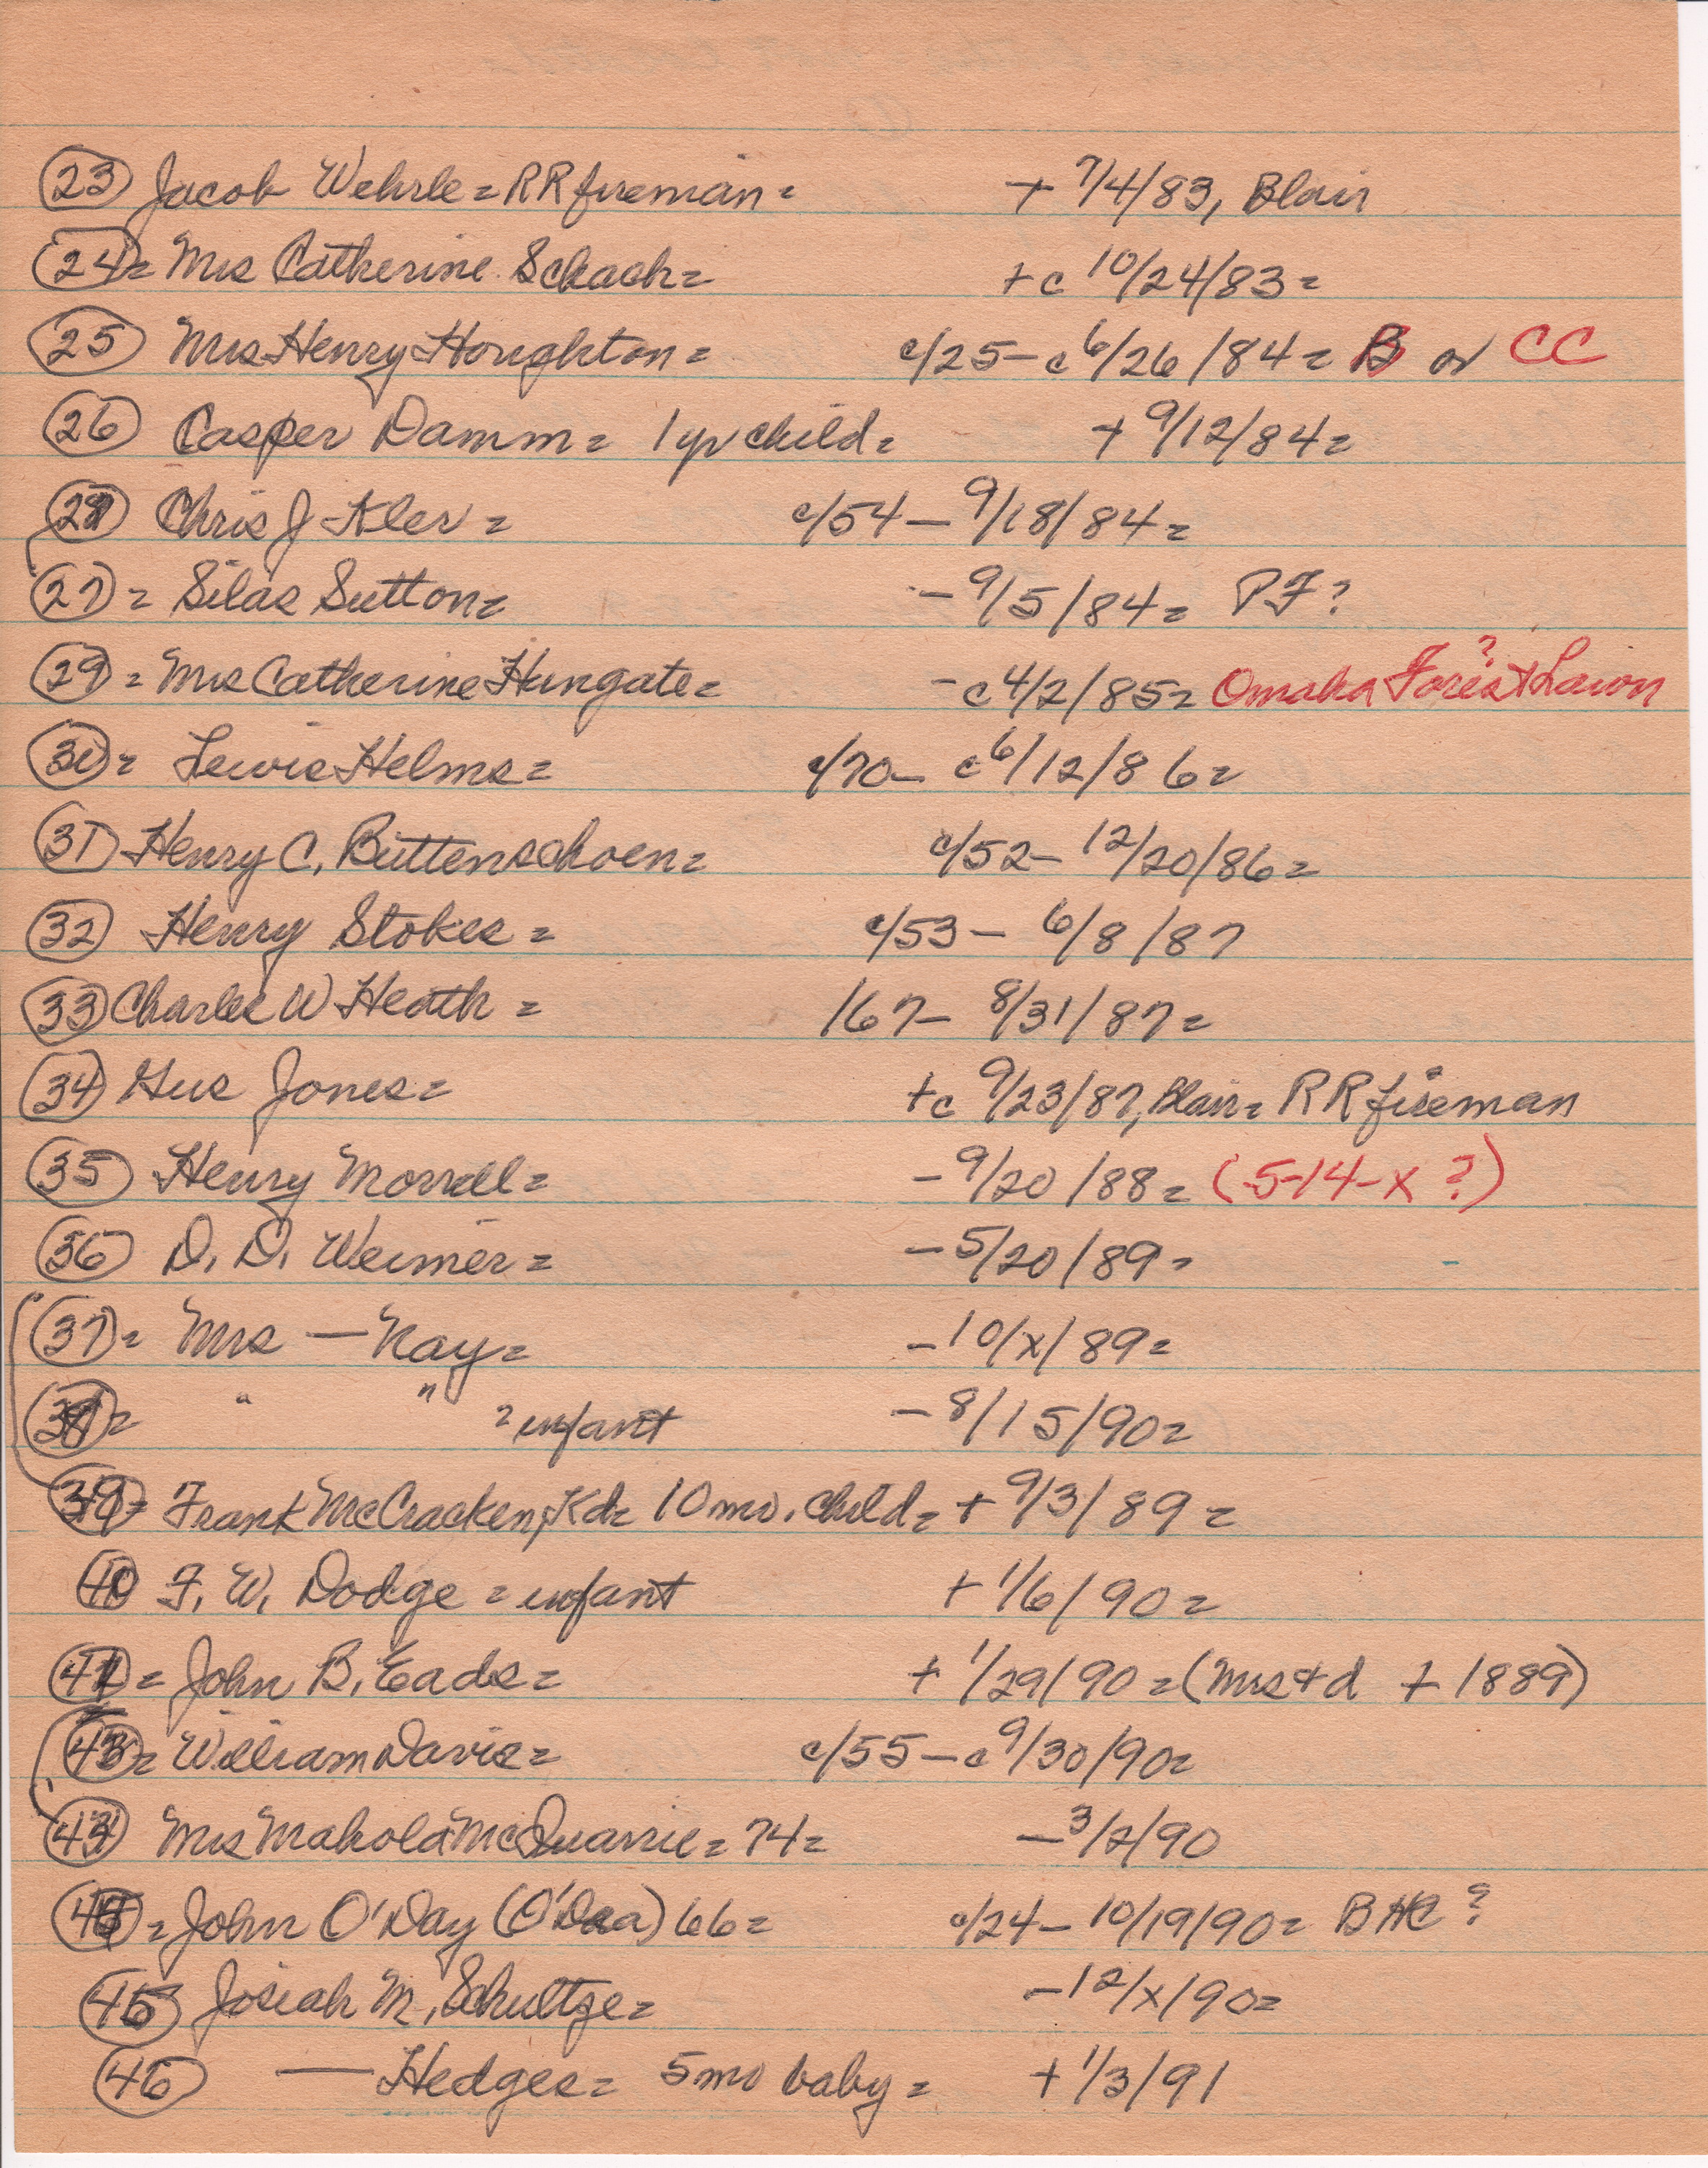 23 Jacob Wehrle = RR fireman = + 7/4/83, Blair
24 = Mrs Catherine Schach = + c 10/24/83 =
25 Mrs Henry Houghton = c/25 - c 6/26/84 = B or CC
26 Casper Damm = 1 yr child = + 9/12/84 =
28 Chris J Kler = c/54 - 9/18/84 =
27 = Silas Sutton = - 9/5/84 = PF?
29 = Mrs Catherine Hungate = - c 4/2/85 = Omaha Forest Lawn ?
30 = Lewis Helms = c/70 - c 6/12/86 =
31 Henry C. Buttenschoen = c/52 - 12/20/86 =
32 Henry Stokes = c/53 - 6/8/87
33 Charles W Heath = 167 - 8/31/87 =
34 Gus Jones = + c 9/23/87, Blair = RR fireman
35 Henry Morrell = - 9/20/88 = (5-14-x ?)
36 D. D. Weimer = - 5/20/89 =
37 = Mrs — Nay = - 10/x/89 =
38 = " " = infant - 8/15/90 =
39 = Frank McCracken, Kd = 10 mo. child = + 9/3/89 =
40 F. W. Dodge = infant + 1/6/90 =
41 = John B. Eads = + 1/29/90 = (Mrs + d + 1889)
43 = William Davis = c/55 - c 9/30/90 =
Mrs Mahola McQuarrie = 74 = - 3/2/90
= John O'Day (O'Dea) 66 = c/24 - 10/19/90 = BHC ?
45 Josiah M. Schultze = - 12/x/90 =
46 — Hedges = 5 mo baby = + 1/3/91